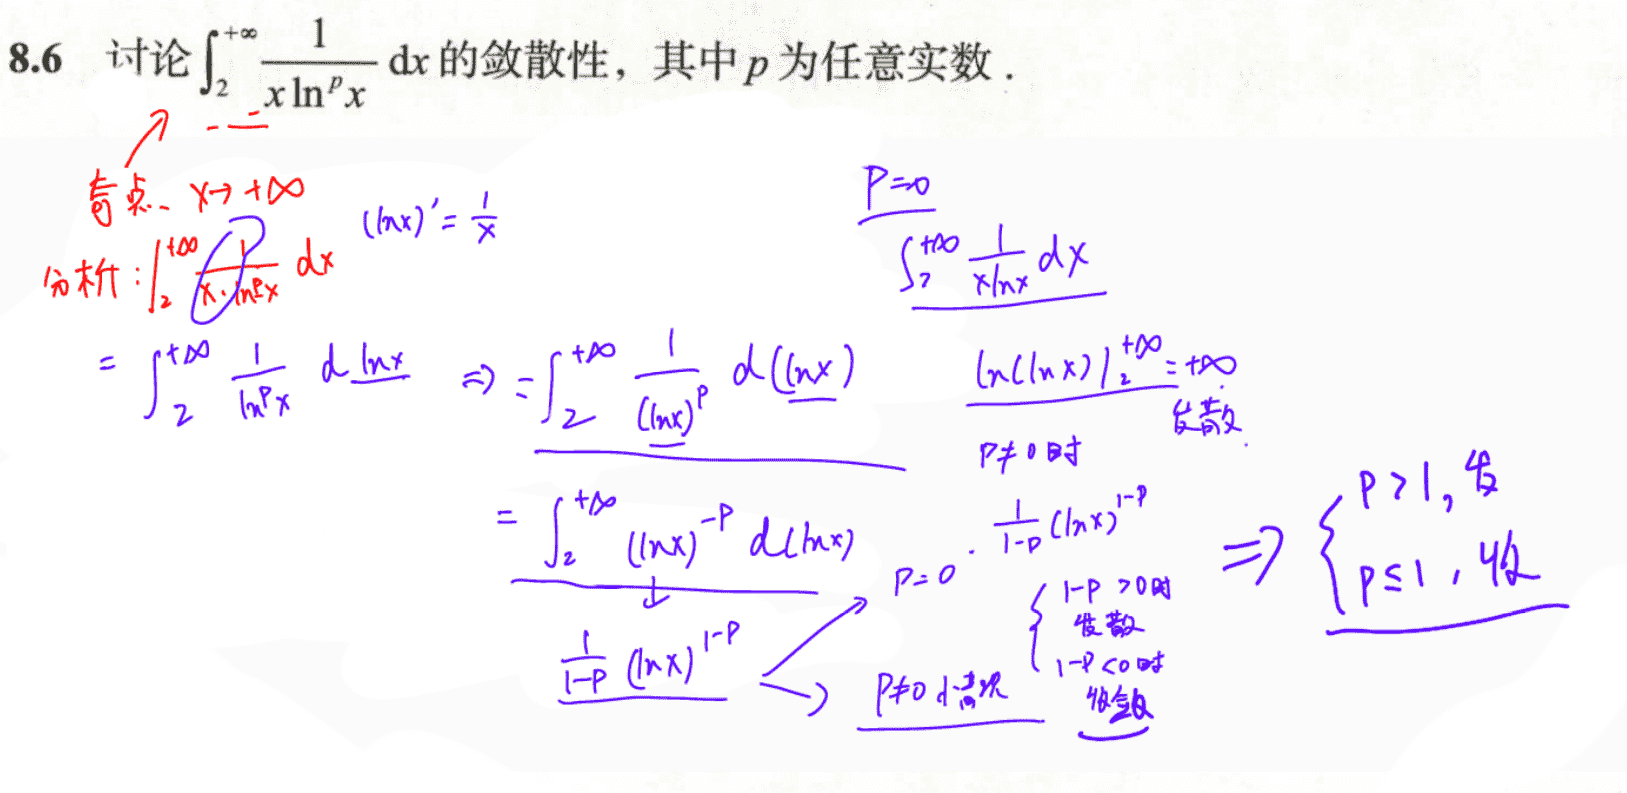 8.6 讨论 ∫₂^{+∞} 1/(x ln^p x) dx 的敛散性，其中 p 为任意实数.
奇点、x→+∞
(lnx)' = 1/x
分析: ∫₂^{+∞} 1/(x·ln^p x) dx
= ∫₂^{+∞} 1/(ln^p x) d lnx
⇒ = ∫₂^{+∞} 1/(lnx)^p d(lnx)
= ∫₂^{+∞} (lnx)^{-p} d(lnx)
1/(1-p) (lnx)^{1-p}
p=0
p≠0
P=0
∫₂^{+∞} 1/(xlnx) dx
ln(lnx)|₂^{+∞} = +∞
发散.
p≠0时
1/(1-p) (lnx)^{1-p}
1-p>0时
发散
1-p<0时
收敛
⇒ { p>1, 发
p≤1, 收